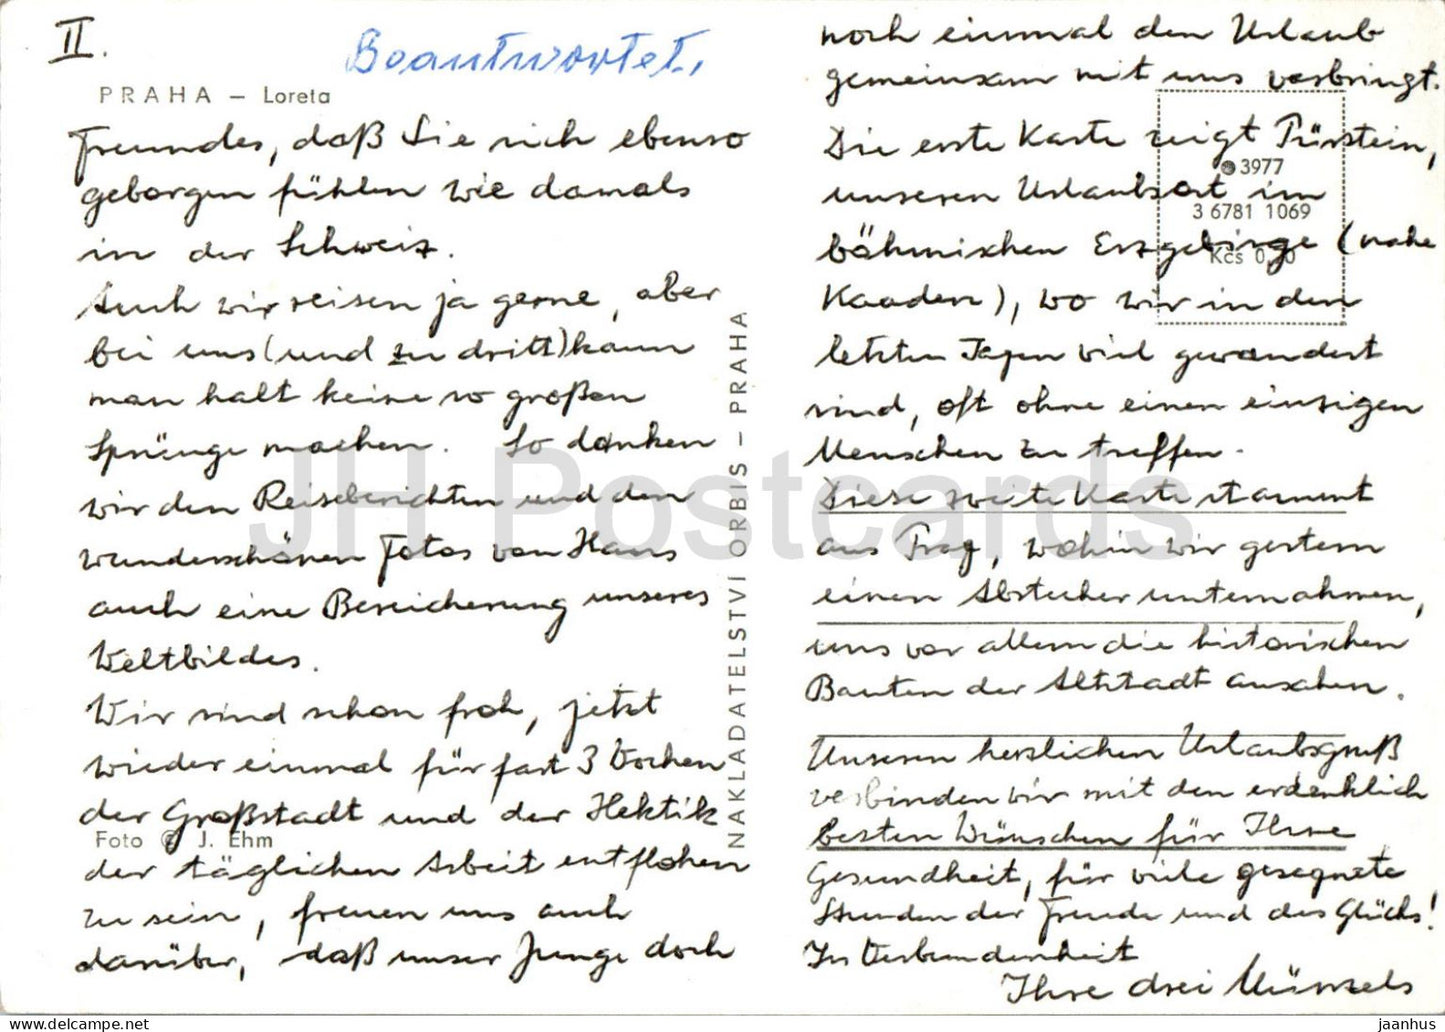 II.
Beantwortet.
PRAHA – Loreta
Freundes, daß Sie sich ebenso
geborgen fühlen wie damals
in der Schweiz.
Auch wir reisen ja gerne, aber
bei uns (und zu dritt) kann
man halt keine so großen
Sprünge machen. So danken
wir den Reiseberichten und den
wunderschönen Fotos von Hans
auch eine Bereicherung unseres
Weltbildes.
Wir sind schon froh, jetzt
wieder einmal für fast 3 Wochen
der Großstadt und der Hektik
Foto © J. Ehm
der täglichen Arbeit entflohen
zu sein, freuen uns auch
darüber, daß unser Junge doch
NAKLADATELSTVÍ ORBIS – PRAHA
noch einmal den Urlaub
gemeinsam mit uns verbringt.
Die erste Karte zeigt Pürstein,
3977
unseren Urlaubsort im
3 6781 1069
böhmischen Erzgebirge (nahe
Kčs 0,
Kaaden), wo wir in den
letzten Tagen viel gewandert
sind, oft ohne einen einzigen
Menschen zu treffen.
Diese zweite Karte stammt
aus Prag, wohin wir gestern
einen Abstecher unternahmen,
uns vor allem die historischen
Bauten der Altstadt ansahen.
Unseren herzlichen Urlaubsgruß
verbinden wir mit den erdenklich
besten Wünschen für Ihre
Gesundheit, für viele gesegnete
Stunden der Freude und des Glücks!
In Verbundenheit
Ihre drei Münzels
JH Postcards
jaanhus.com